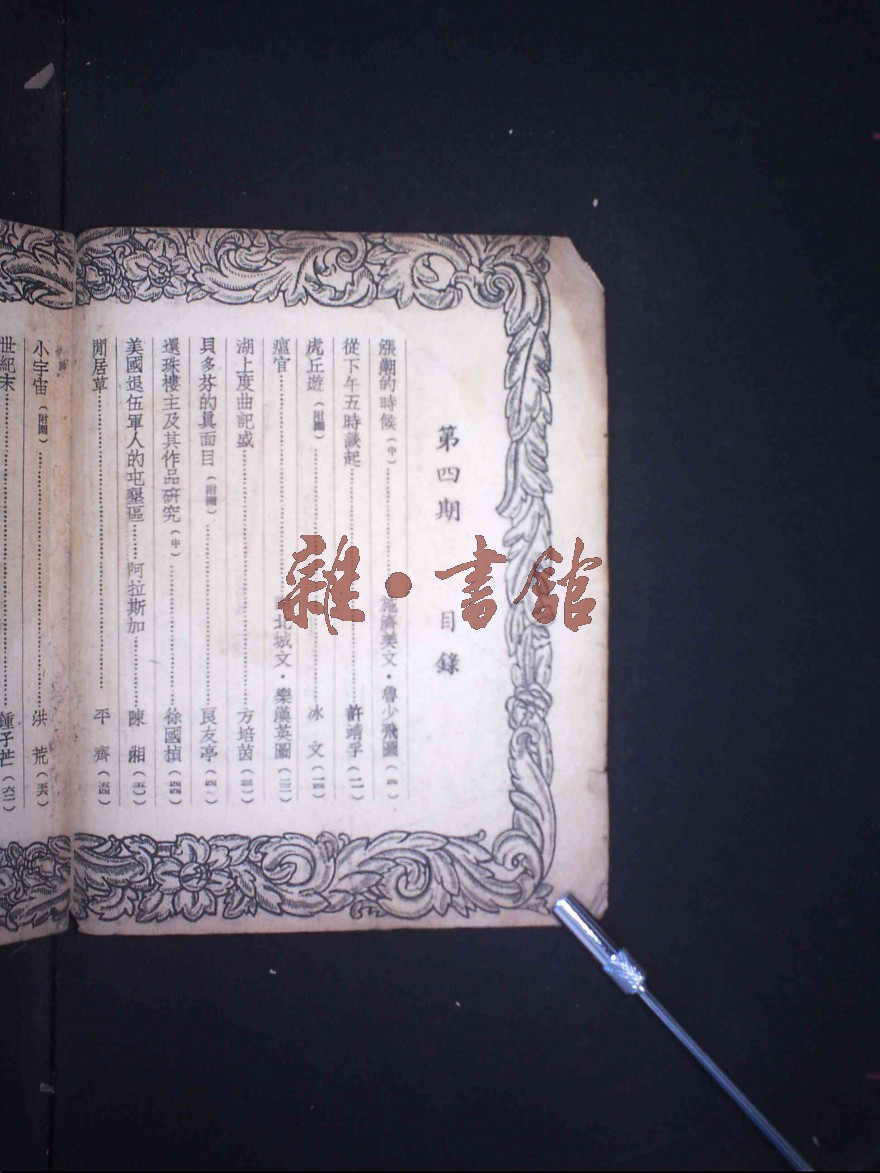 第四期 目錄
漲潮的時候(中)………施濟美文·魯少飛圖(四)
從下午五時談起………許靖孚(一一)
虎丘遊(附圖)………冰文(一四)
瘟官………北城文·樂漢英圖(二二)
湖上度曲記盛………方培茵
貝多芬的眞面目(附圖)………良友亭
還珠樓主及其作品研究(中)………徐國楨(四四)
美國退伍軍人的屯墾區………阿拉斯加………陳湘(五一)
閒居草………平齊(五四)
小宇宙(附圖)………洪荒(五六)
世紀末………鍾子芒(六二)
雜·書館